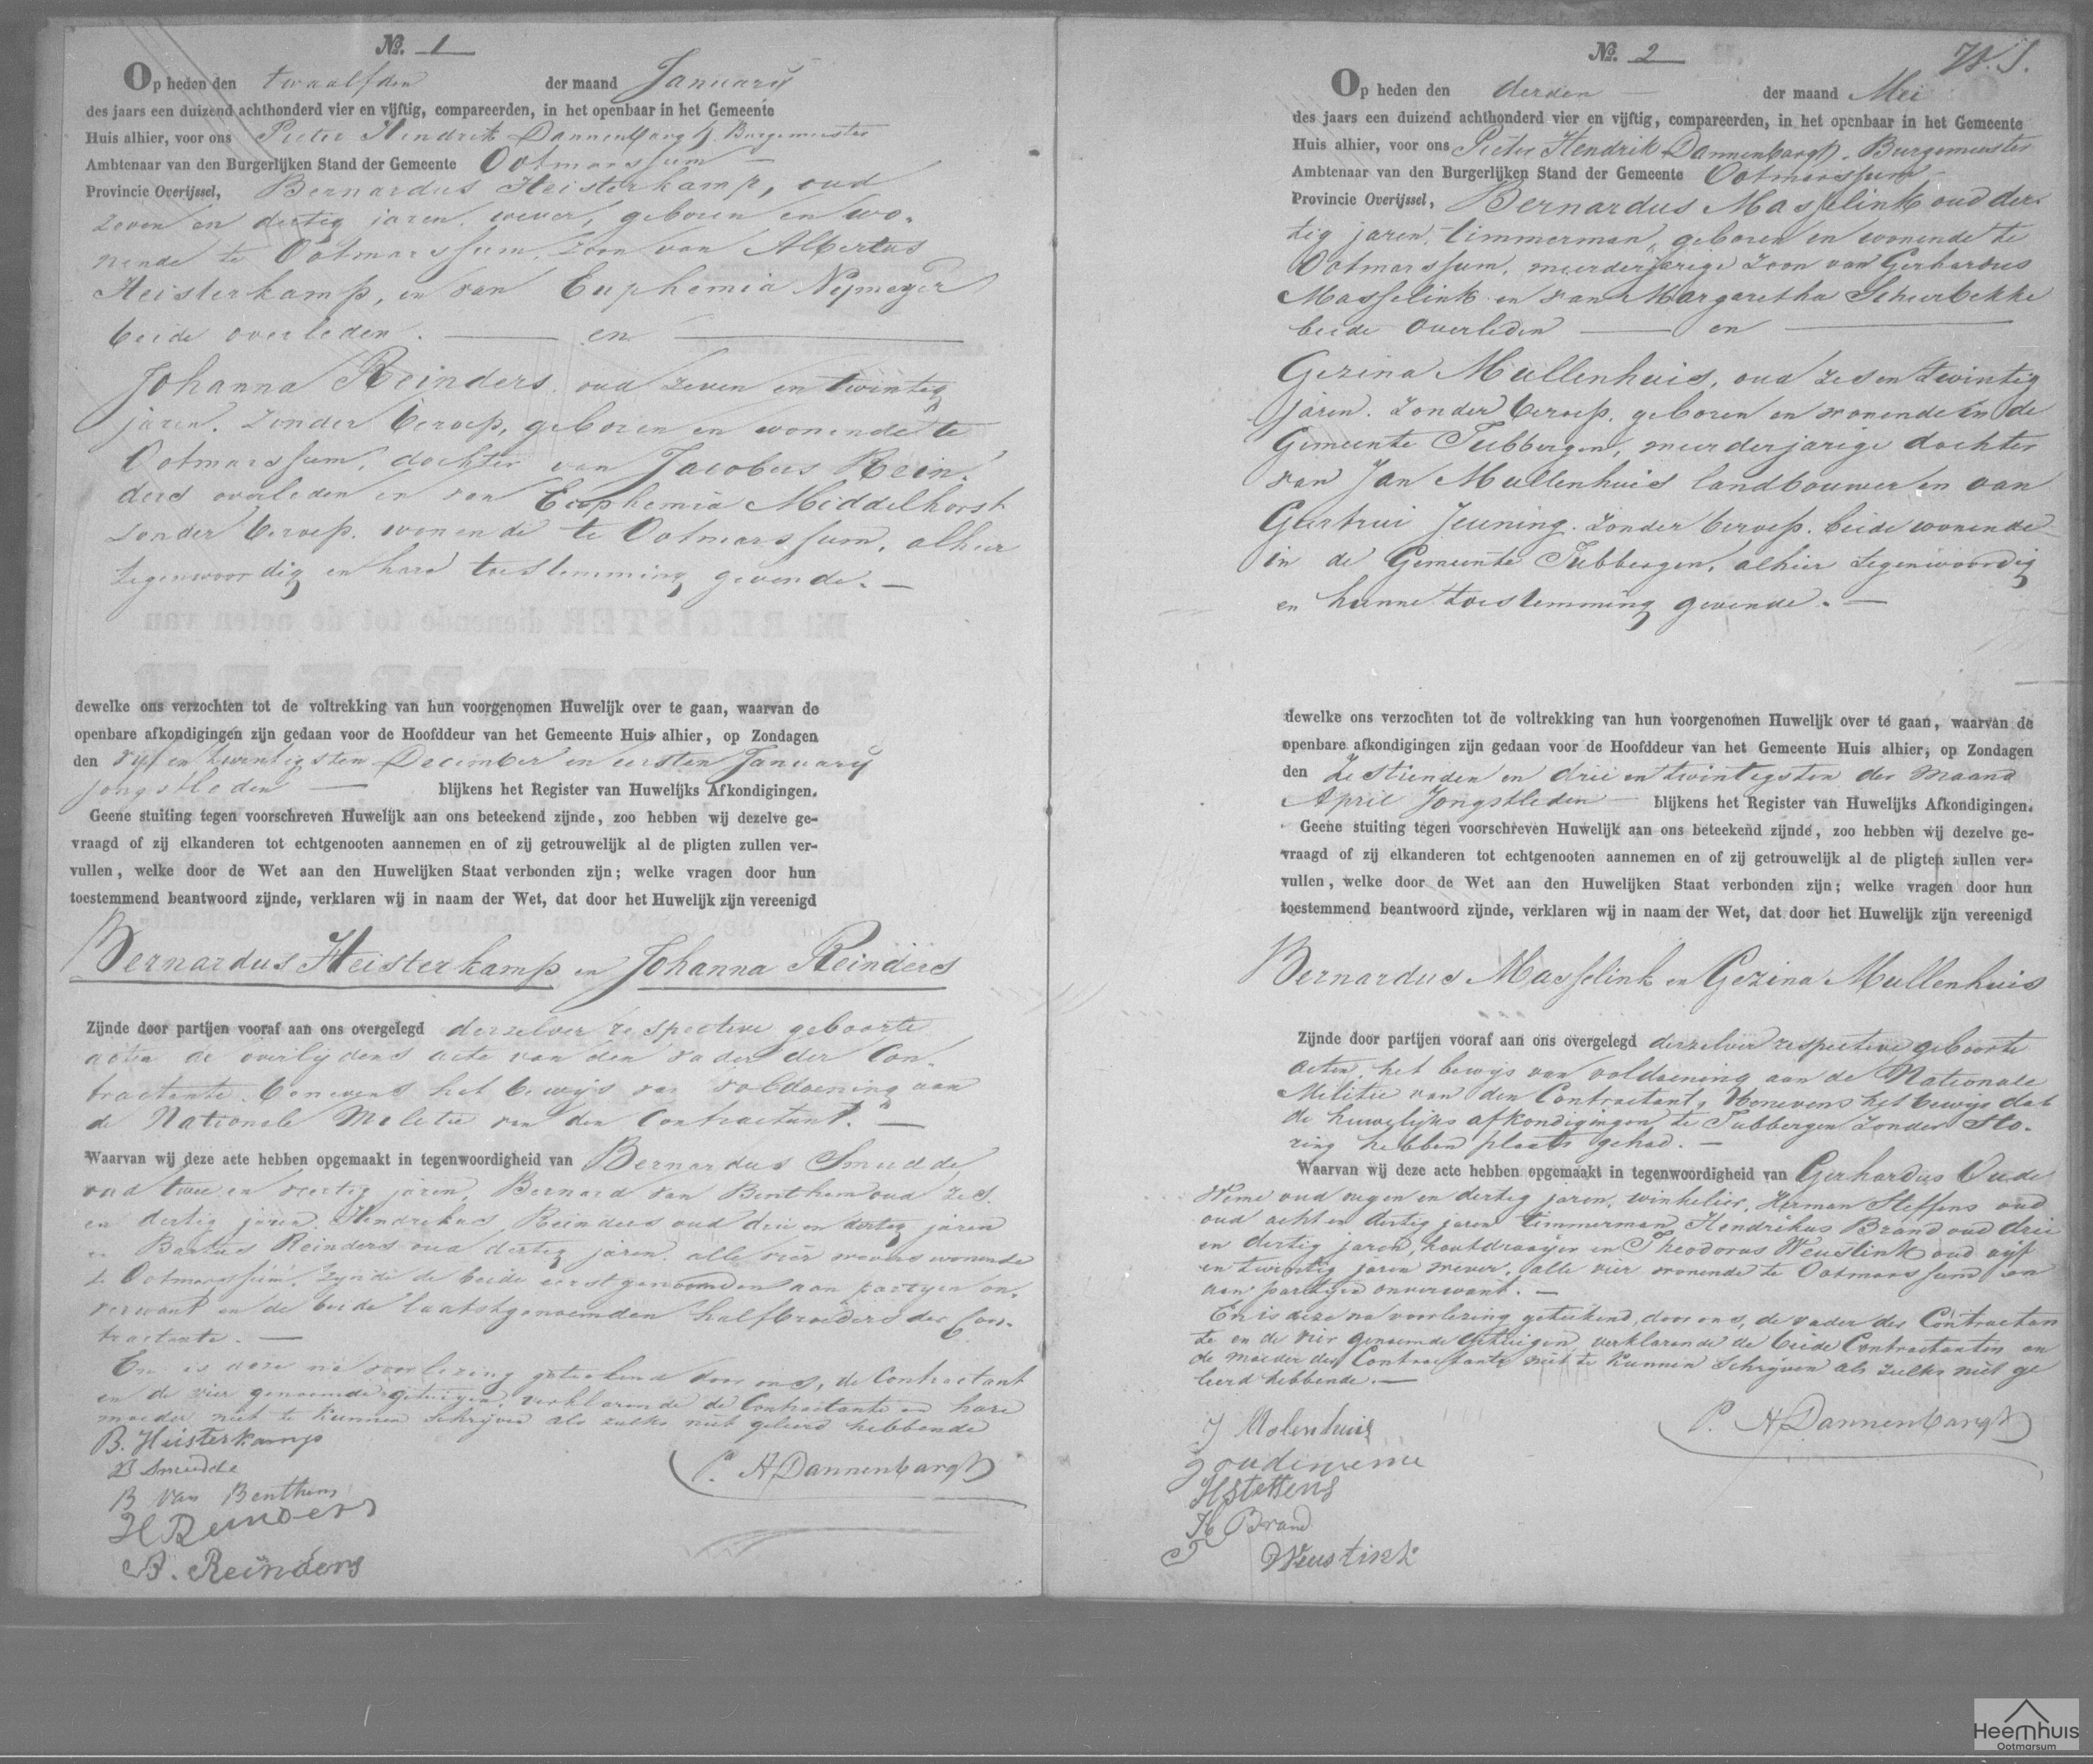 No. 1
Op heden den twaalfden der maand January
des jaars een duizend achthonderd vier en vijftig, compareerden, in het openbaar in het Gemeente
Huis alhier, voor ons Pieter Hendrik Dannenbargh, Burgemeester
Ambtenaar van den Burgerlijken Stand der Gemeente Ootmarssum
Provincie Overijssel, Bernardus Heisterkamp, oud
zeven en dertig jaren, wever, geboren en wo-
nende te Ootmarssum, zoon van Albertus
Heisterkamp, en van Euphemia Nijmeyer
beide overleden. — en —
Johanna Reinders oud zeven en twintig
jaren. zonder beroep, geboren en wonende te
Ootmarssum, dochter van Jacobus Rein-
ders overleden en van Euphemia Middelhorst
zonder beroep. wonende te Ootmarssum, alhier
tegenwoordig en hare toestemming gevende. —
dewelke ons verzochten tot de voltrekking van hun voorgenomen Huwelijk over te gaan, waarvan de
openbare afkondigingen zijn gedaan voor de Hoofddeur van het Gemeente Huis alhier, op Zondagen
den vijf en twintigsten December en eersten January
jongstleden — blijkens het Register van Huwelijks Afkondigingen.
Geene stuiting tegen voorschreven Huwelijk aan ons beteekend zijnde, zoo hebben wij dezelve ge-
vraagd of zij elkanderen tot echtgenooten aannemen en of zij getrouwelijk al de pligten zullen ver-
vullen, welke door de Wet aan den Huwelijken Staat verbonden zijn; welke vragen door hun
toestemmend beantwoord zijnde, verklaren wij in naam der Wet, dat door het Huwelijk zijn vereenigd
Bernardus Heisterkamp en Johanna Reinders
Zijnde door partijen vooraf aan ons overgelegd derzelver respective geboorte
acten de overlijdens acte van den vader der Con-
tractante. benevens het bewijs van voldoening aan
de Nationale Militie van den Contractant. —
Waarvan wij deze acte hebben opgemaakt in tegenwoordigheid van Bernardus Smudde,
oud twee en veertig jaren, Bernard van Benthem oud zes
en dertig jaren. Hendrikus Reinders oud drie en dertig jaren
en Bartus Reinders oud dertig jaren. alle vier wevers wonende
te Ootmarssum, zynde de beide eerstgenoemden aan partyen on-
verwant en de beide laatstgenoemden halfbroeders der Con-
tractante. —
En is deze na voorlezing geteekend door ons, de Contractant
en de vier genoemde getuigen, verklarende de Contractante en hare
moeder niet te kunnen schrijven als zulks niet geleerd hebbende
B. Heisterkamp
B Smudde
B Van Benthem
H Reinders
B. Reinders
P. H Dannenbargh
No. 2
W. S.
Op heden den derden — der maand Mei
des jaars een duizend achthonderd vier en vijftig, compareerden, in het openbaar in het Gemeente
Huis alhier, voor ons Pieter Hendrik Dannenbargh, Burgemeester
Ambtenaar van den Burgerlijken Stand der Gemeente Ootmarssum
Provincie Overijssel, Bernardus Masselink oud der-
tig jaren, timmerman, geboren en wonende te
Ootmarssum, meerderjarige zoon van Gerhardus
Masselink en van Margaretha Scheurbekke
beide overleden — en —
Gezina Mullenhuis, oud zes en twintig
jaren. zonder beroep, geboren en wonende in de
Gemeente Tubbergen, meerderjarige dochter
van Jan Mullenhuis landbouwer en van
Geertrui Jeuning. zonder beroep. beide wonende
in de Gemeente Tubbergen, alhier tegenwoordig
en hunne toestemming gevende. —
dewelke ons verzochten tot de voltrekking van hun voorgenomen Huwelijk over te gaan, waarvan de
openbare afkondigingen zijn gedaan voor de Hoofddeur van het Gemeente Huis alhier, op Zondagen
den zestienden en drie en twintigsten der maand
April jongstleden — blijkens het Register van Huwelijks Afkondigingen.
Geene stuiting tegen voorschreven Huwelijk aan ons beteekend zijnde, zoo hebben wij dezelve ge-
vraagd of zij elkanderen tot echtgenooten aannemen en of zij getrouwelijk al de pligten zullen ver-
vullen, welke door de Wet aan den Huwelijken Staat verbonden zijn; welke vragen door hun
toestemmend beantwoord zijnde, verklaren wij in naam der Wet, dat door het Huwelijk zijn vereenigd
Bernardus Masselink en Gezina Mullenhuis
Zijnde door partijen vooraf aan ons overgelegd derzelver respective geboorte
acten, het bewijs van voldoening aan de Nationale
Militie van den Contractant, benevens het bewijs dat
de huwelijks afkondigingen te Tubbergen zonder sto-
ring hebben plaats gehad. —
Waarvan wij deze acte hebben opgemaakt in tegenwoordigheid van Gerhardus Oude
Weme oud negen en dertig jaren, winkelier, Herman Steffens oud
oud acht en dertig jaren timmerman, Hendrikus Brand oud drie
en dertig jaren, houtdraayer en Theodorus Weustink oud vijf
en twintig jaren wever. alle vier wonende te Ootmarssum en
aan partyen onverwant. —
En is deze na voorlezing geteekend, door ons, de vader der Contractan
te en de vier genoemde getuigen, verklarende de beide Contractanten en
de moeder der Contractante niet te kunnen schrijven als zulks niet ge
leerd hebbende. —
J Molenhuis
G oudeweme
H Steffens
H Brand
T Weustink
P. H Dannenbargh
Heemhuis
Ootmarsum